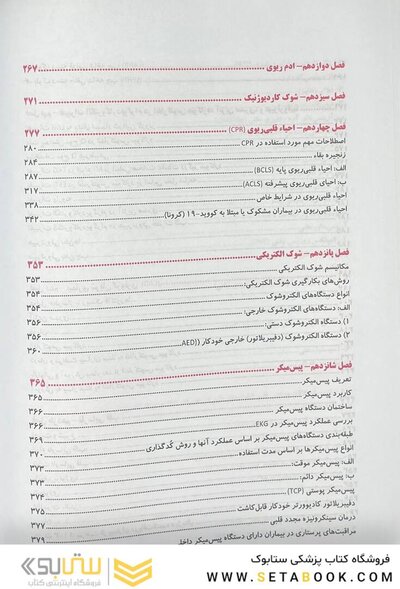 فصل دوازدهم- ادم ریوی ۲۶۷
فصل سیزدهم- شوک کاردیوژنیک ۲۷۱
فصل چهاردهم- احیاء قلبی‌ریوی (CPR) ۲۷۷
اصطلاحات مهم مورد استفاده در CPR ۲۸۰
زنجیره بقاء ۲۸۴
الف: احیاء قلبی‌ریوی پایه (BCLS) ۲۸۷
ب: احیای قلبی‌ریوی پیشرفته (ACLS) ۳۱۷
احیاء قلبی‌ریوی در شرایط خاص ۳۳۸
احیاء قلبی‌ریوی در بیماران مشکوک یا مبتلا به کووید-۱۹ (کرونا) ۳۴۲
فصل پانزدهم- شوک الکتریکی ۳۵۳
مکانیسم شوک الکتریکی ۳۵۳
روش‌های بکارگیری شوک الکتریکی: ۳۵۴
انواع دستگاه‌های الکتروشوک ۳۵۴
الف: دستگاه‌های الکتروشوک خارجی: ۳۵۶
۱) دستگاه الکتروشوک دستی: ۳۵۶
۲) دستگاه الکتروشوک (دفیبریلاتور) خارجی خودکار (AED) ۳۶۰
فصل شانزدهم- پیس‌میکر ۳۶۵
تعریف پیس‌میکر ۳۶۵
کاربرد پیس‌میکر ۳۶۵
ساختمان دستگاه پیس‌میکر ۳۶۶
بررسی عملکرد پیس‌میکر در EKG ۳۶۶
طبقه‌بندی دستگاه‌های پیس‌میکر بر اساس عملکرد آنها و روش کُدگذاری ۳۶۹
انواع پیس‌میکرها بر اساس مدت استفاده ۳۷۰
الف: پیس‌میکر موقت: ۳۷۳
ب: پیس‌میکر دائم: ۳۷۳
پیس‌میکر پوستی (TCP) ۳۷۴
دفیبریلاتور کاردیوورتر خودکار قابل‌کاشت ۳۷۵
درمان سینکرونیزه مجدد قلبی ۳۷۷
مراقبت‌های پرستاری در بیماران دارای دستگاه پیس‌میکر داخل ۳۷۹
فروشگاه کتاب پزشکی ستابوک
WWW.SETABOOK.COM
ستابوک
فروشگاه اینترنتی کتاب